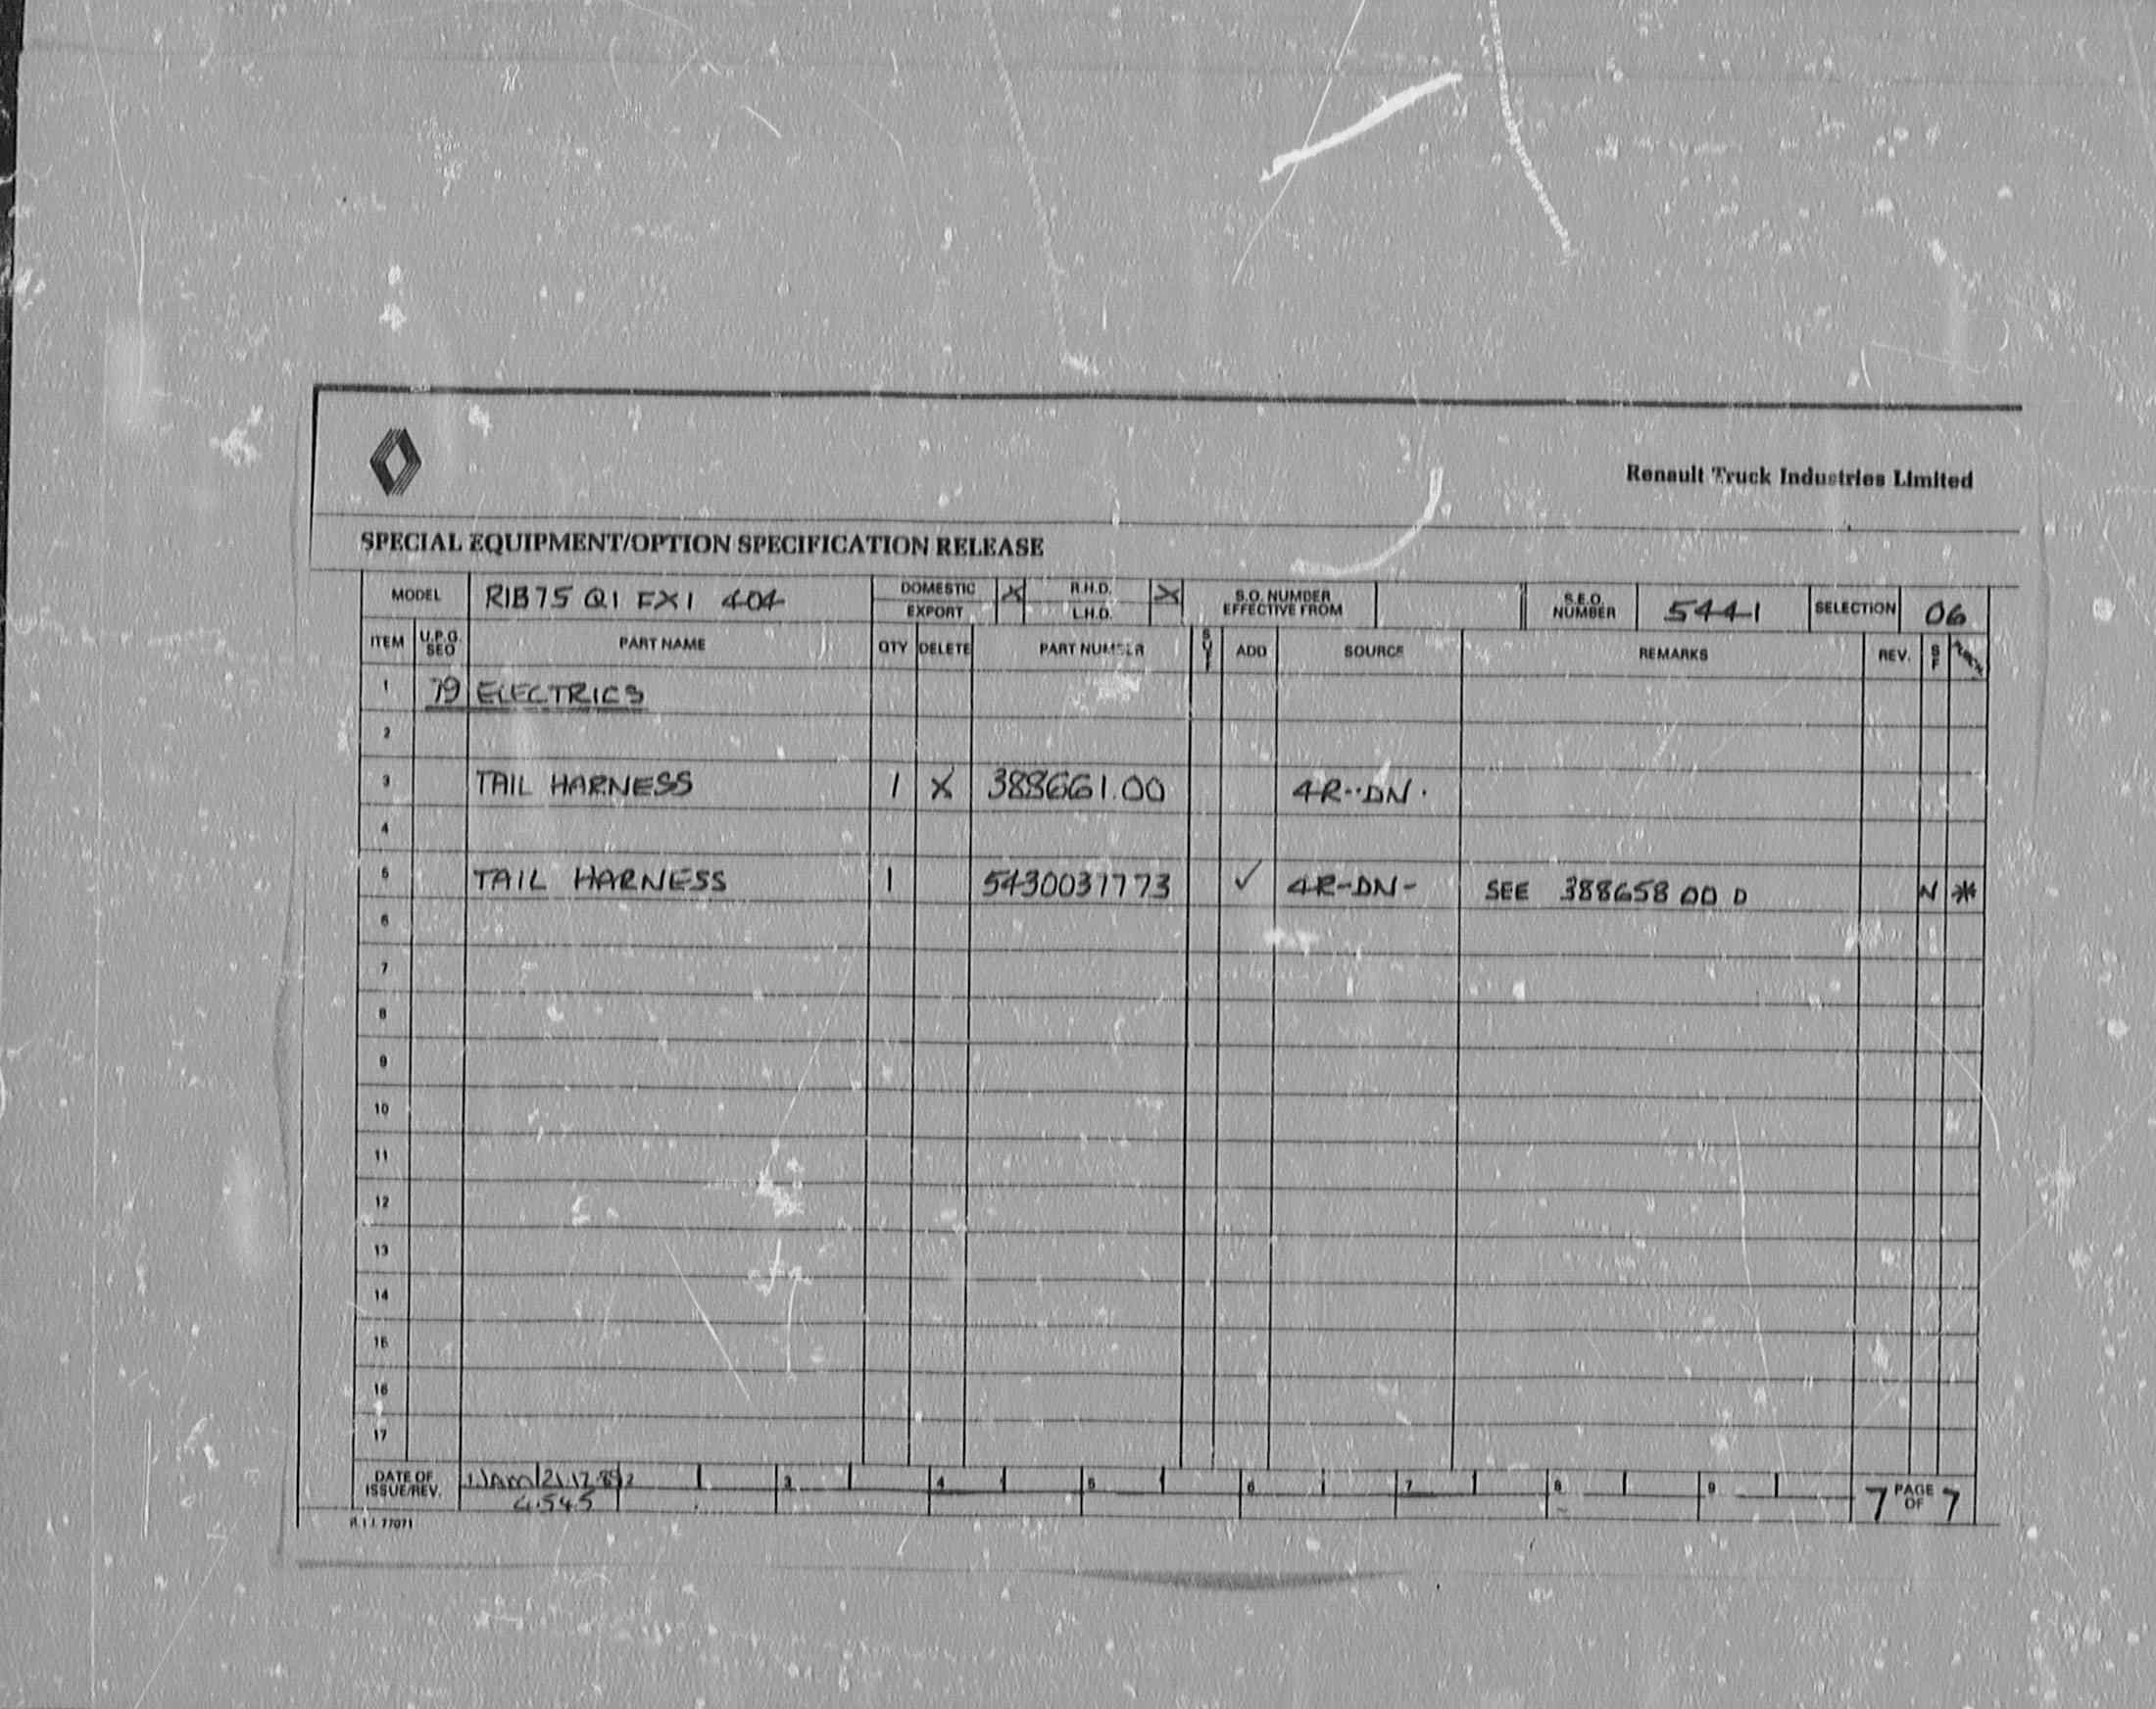 Renault Truck Industries Limited
SPECIAL EQUIPMENT/OPTION SPECIFICATION RELEASE
MODEL R1B75 Q1 FX1 404 DOMESTIC X R.H.D. X S.O. NUMBER EFFECTIVE FROM S.E.O. NUMBER 5441 SELECTION 06
EXPORT L.H.D.
ITEM U.P.G. SEO PART NAME QTY DELETE PART NUMBER ADD SOURCE REMARKS REV. SF
1 79 ELECTRICS
2
3 TAIL HARNESS 1 X 388661.00 4R--DN.
4
5 TAIL HARNESS 1 5430037773 ✓ 4R-DN- SEE 388658 00 D N *
6
7
8
9
10
11
12
13
14
15
16
17
DATE OF ISSUE/REV. 1 21.12.89 2 3 4 5 6 7 8 9 7 PAGE OF 7
4545
77071